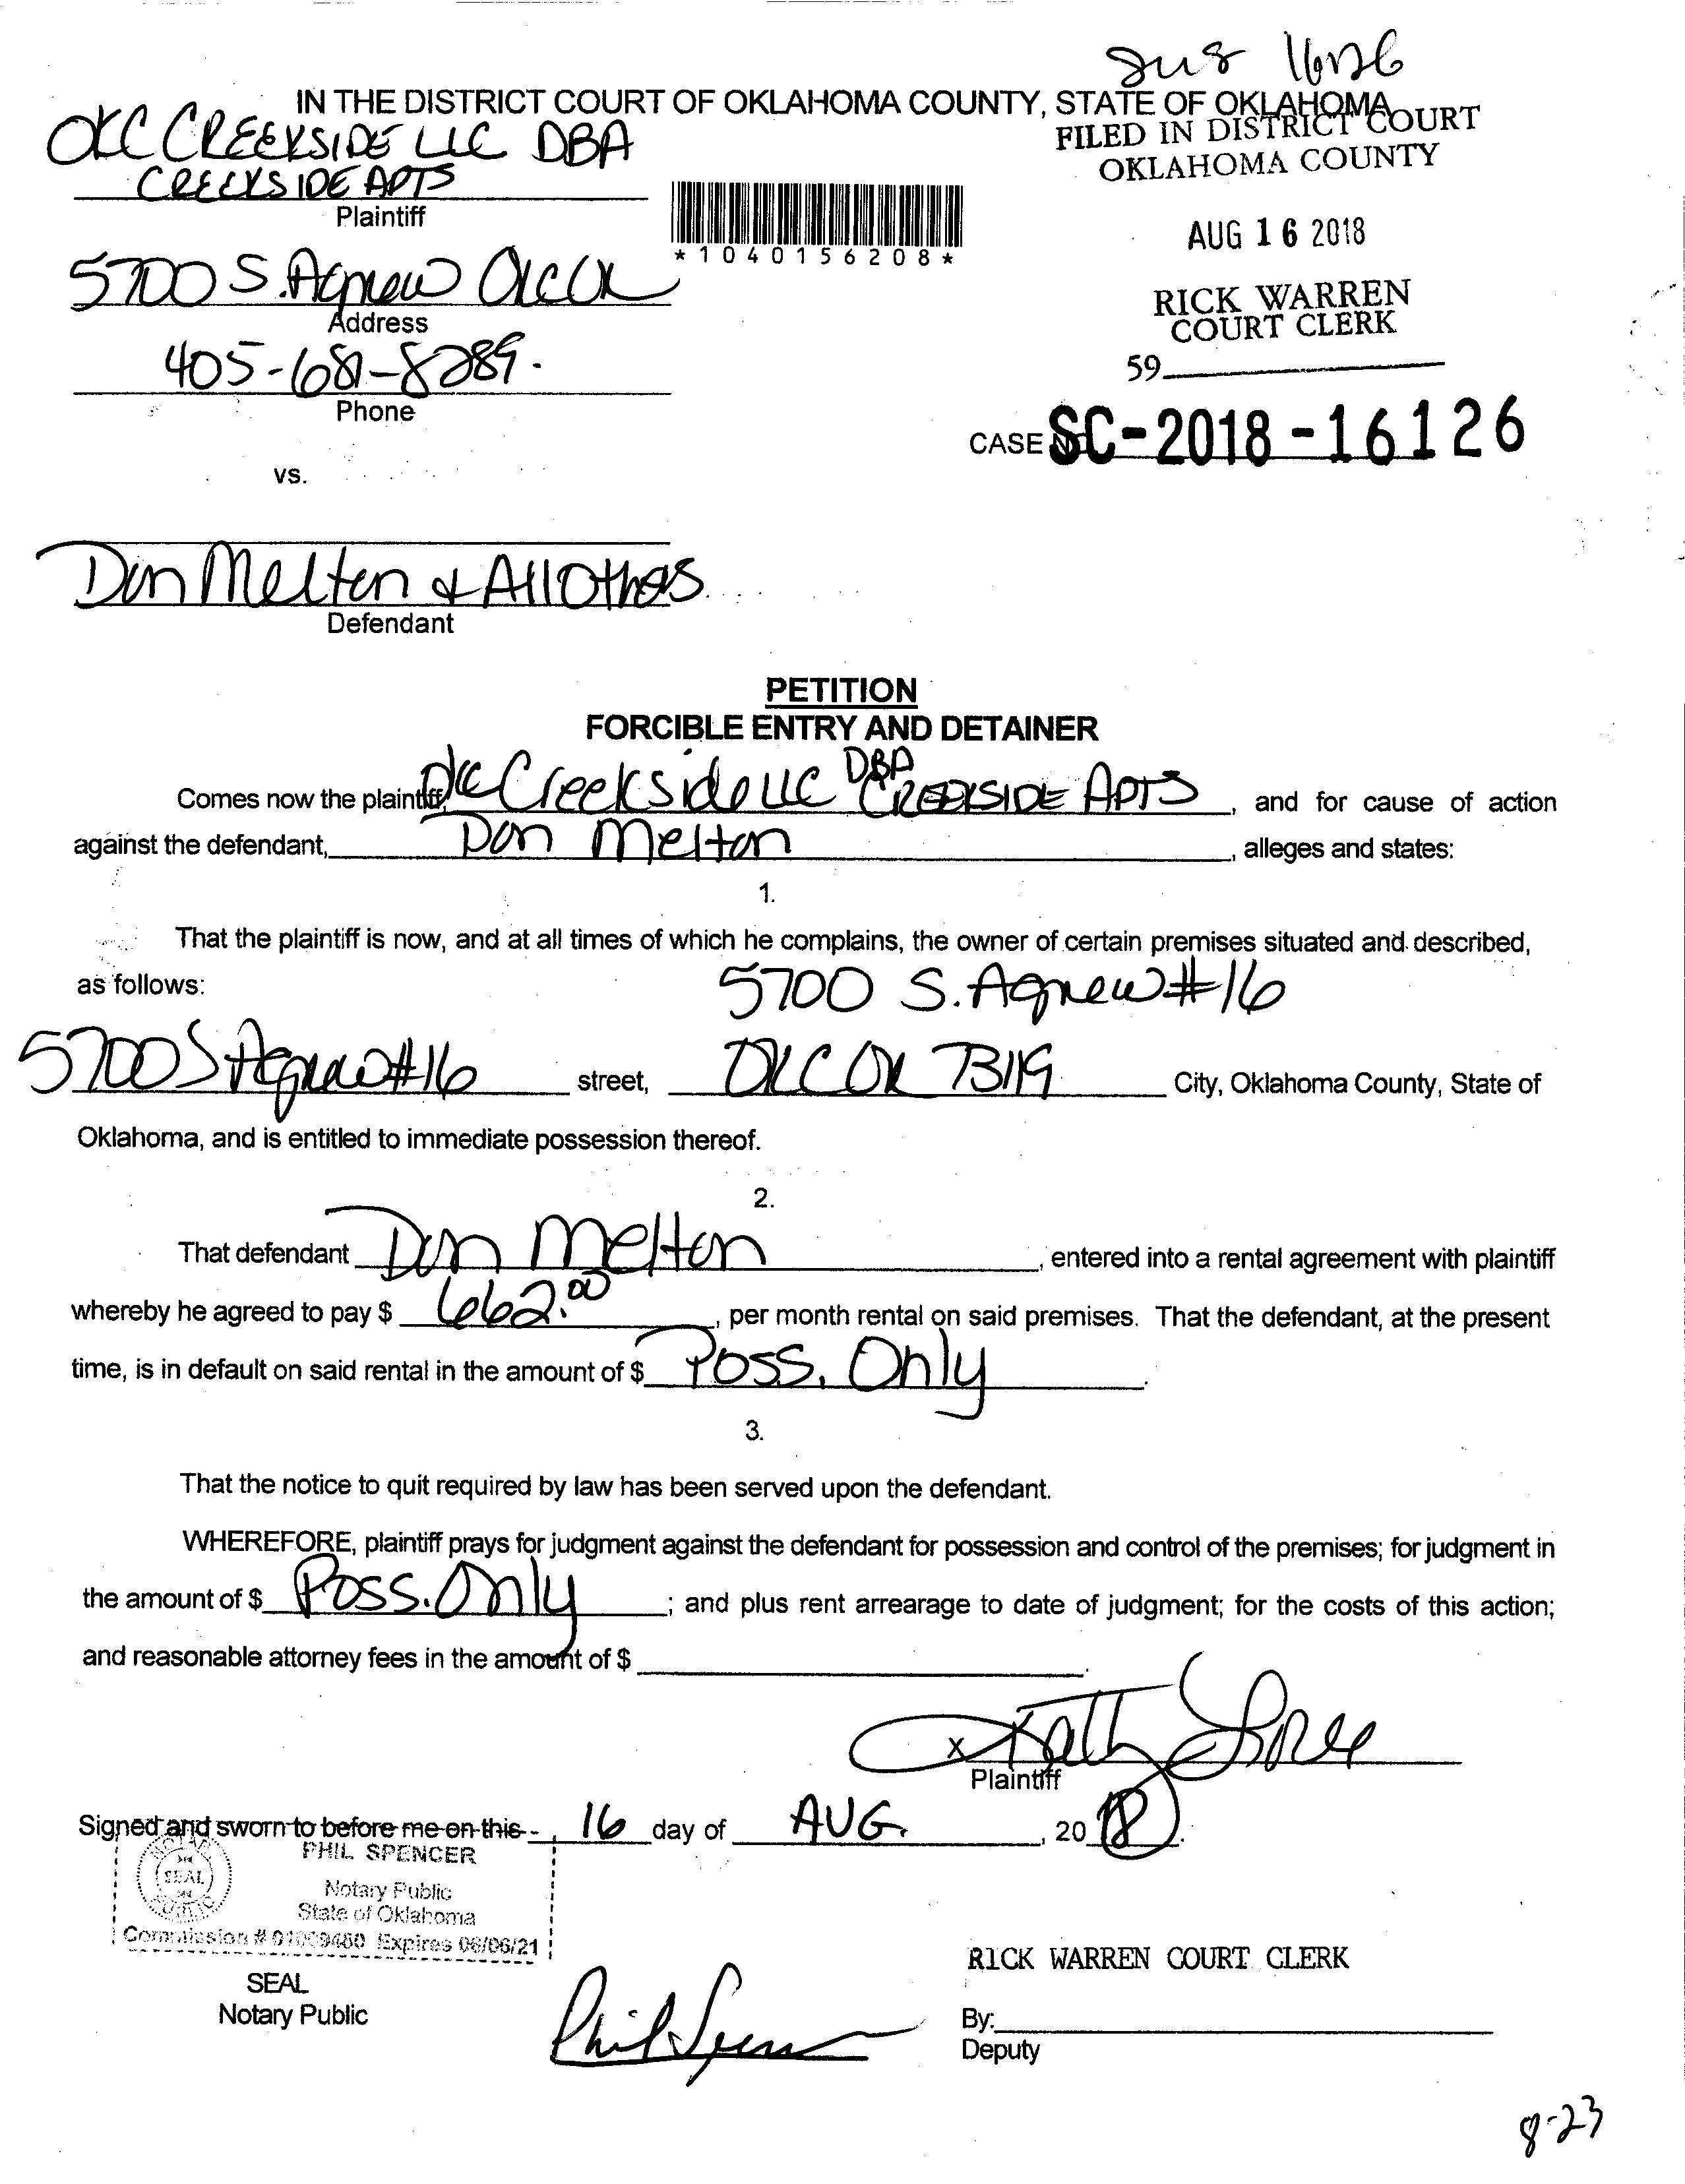 16126
IN THE DISTRICT COURT OF OKLAHOMA COUNTY, STATE OF OKLAHOMA
OKC CREEKSIDE LLC DBA
CREEKSIDE APTS
Plaintiff
FILED IN DISTRICT COURT
OKLAHOMA COUNTY
*1040156208*
AUG 16 2018
5700 S. Agnew OKC OK
Address
RICK WARREN
COURT CLERK
405-681-8289.
Phone
59
CASE NO. SC-2018-16126
vs.
Don Melton & All Others
Defendant
PETITION
FORCIBLE ENTRY AND DETAINER
Comes now the plaintiff, OKC Creekside LLC DBA CREEKSIDE APTS, and for cause of action
against the defendant, Don Melton, alleges and states:
1.
That the plaintiff is now, and at all times of which he complains, the owner of certain premises situated and described,
as follows: 5700 S. Agnew #16
5700 S Agnew #16 street, OKC OK 73119 City, Oklahoma County, State of
Oklahoma, and is entitled to immediate possession thereof.
2.
That defendant Don Melton, entered into a rental agreement with plaintiff
whereby he agreed to pay $ 662.00, per month rental on said premises. That the defendant, at the present
time, is in default on said rental in the amount of $ Poss. Only.
3.
That the notice to quit required by law has been served upon the defendant.
WHEREFORE, plaintiff prays for judgment against the defendant for possession and control of the premises; for judgment in
the amount of $ Poss. Only; and plus rent arrearage to date of judgment; for the costs of this action;
and reasonable attorney fees in the amount of $
X
Plaintiff
Signed and sworn to before me on this 16 day of AUG., 2018.
PHIL SPENCER
SEAL
Notary Public
State of Oklahoma
Commission # 01009460 Expires 06/06/21
SEAL
Notary Public
Phil Spencer
RICK WARREN COURT CLERK
By:
Deputy
8-23